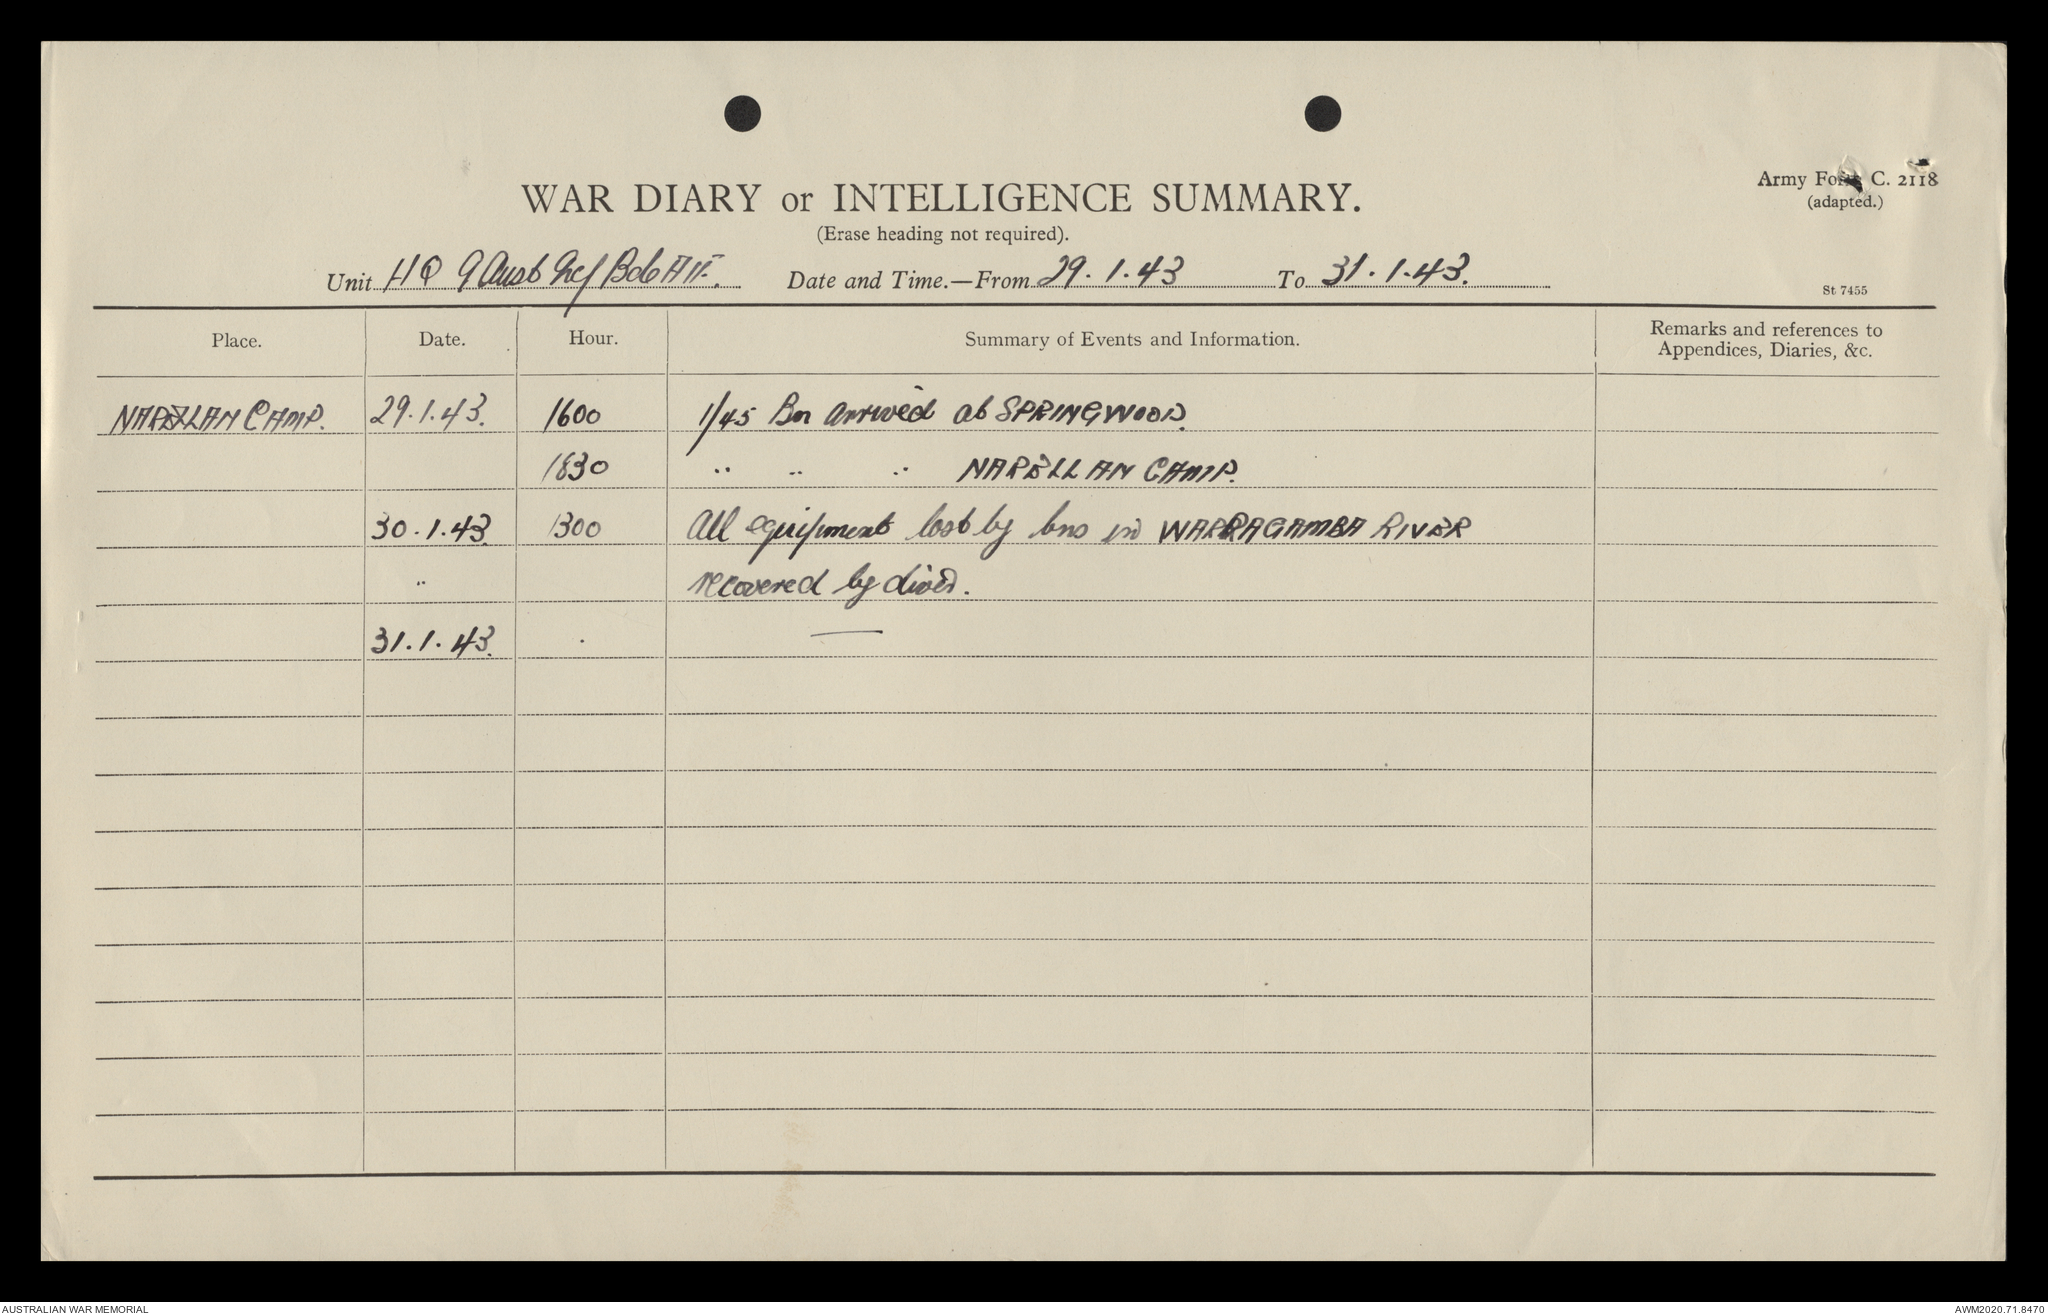 Army Form C. 2118
(adapted.)
WAR DIARY or INTELLIGENCE SUMMARY.
(Erase heading not required).
Unit HQ 9 Aust Inf Bde AIF. Date and Time.—From 29.1.43 To 31.1.43.
St 7455
Place. Date. Hour. Summary of Events and Information. Remarks and references to
Appendices, Diaries, &c.
NARELLAN CAMP. 29.1.43. 1600 1/45 Bn arrived at SPRINGWOOD.
1830 " " " NARELLAN CAMP.
30.1.43. 1300 All equipment lost by bns in WARRAGAMBA RIVER
" recovered by diver.
31.1.43. —
AUSTRALIAN WAR MEMORIAL AWM2020.71.8470